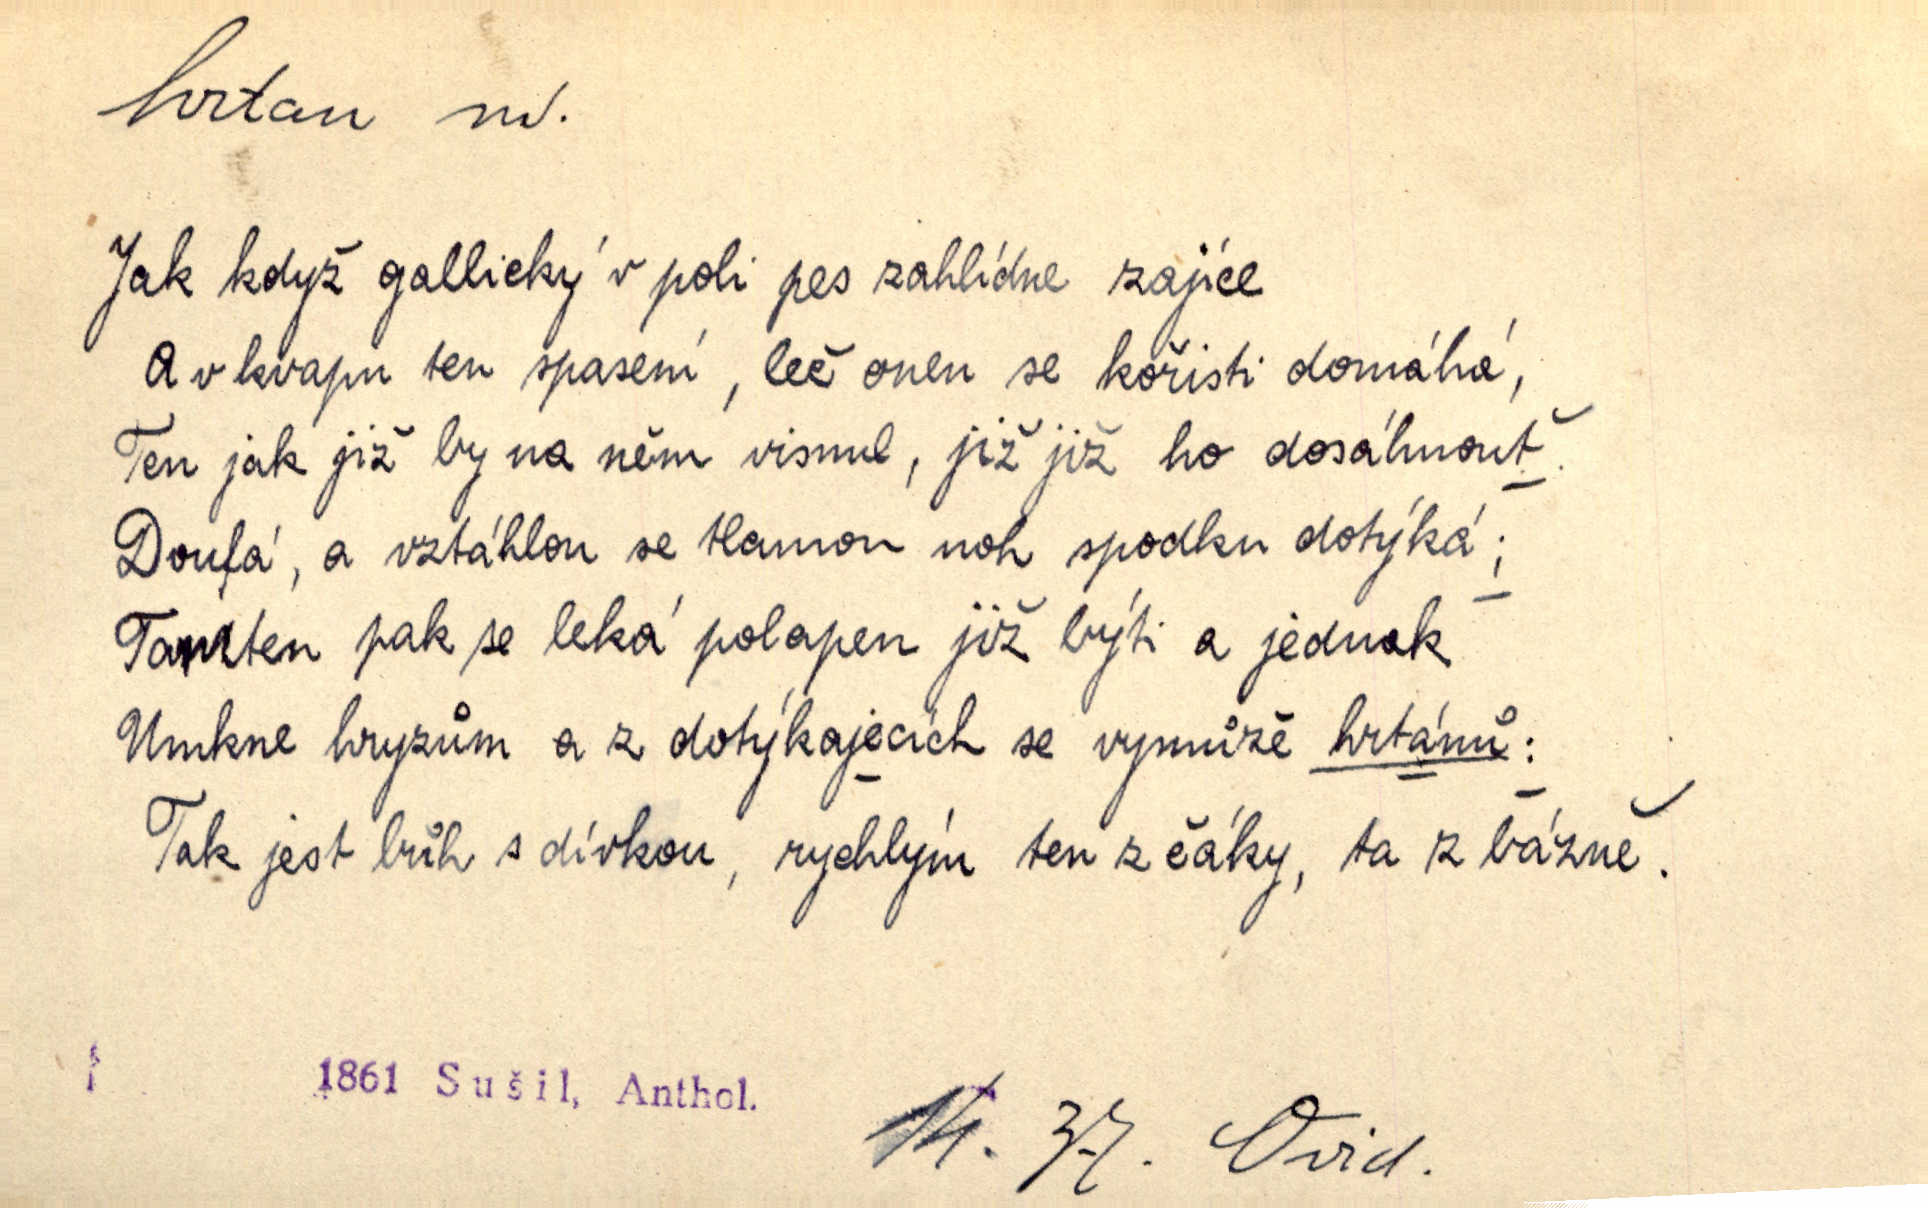 hrtan m.
Jak když gallický v poli pes zahlídne zajíce
A v kvapu ten spasení, leč onen se kořisti domáhá,
Ten jak již by na něm visnul, již již ho dosáhnouť
Doufá, a vztáhlou se tlamou noh spodku dotýká;
Tamten pak se leká polapen již býti a jednak
Umkne hryzům a z dotýkajecích se vymůzě hrtánů:
Tak jest bůh s dívkou, rychlým ten z čáky, ta z bázně.
1861 Sušil, Anthol.
14. 37. Ovid.